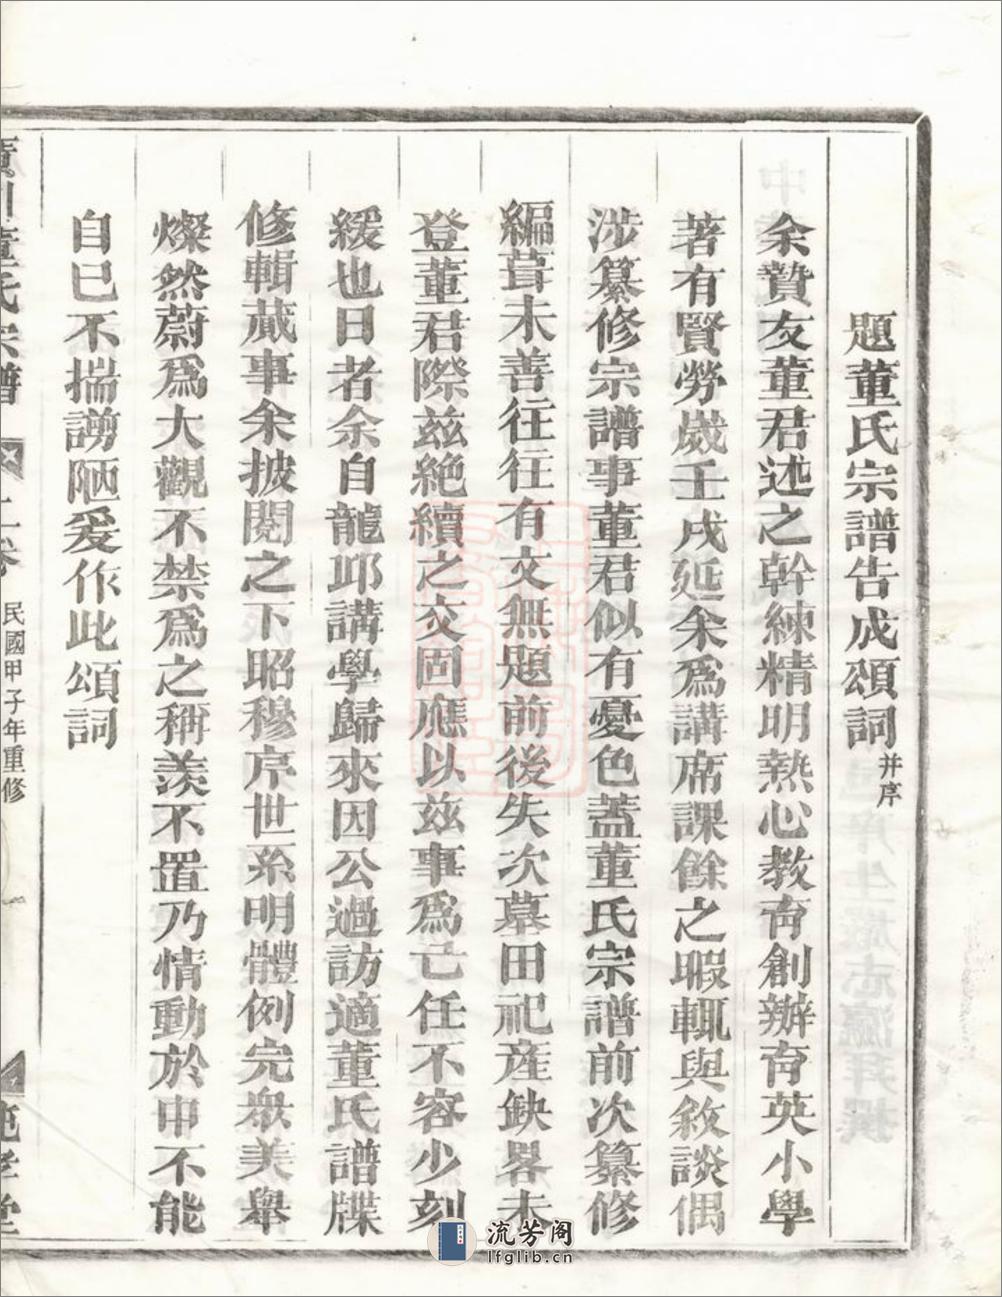 題董氏宗譜告成頌詞并序
余贊友董君述之幹練精明熱心教育創辦育英小學
著有賢勞歲壬戌延余爲講席課餘之暇輒與敘談偶
涉纂修宗譜事董君似有憂色蓋董氏宗譜前次纂修
編葺未善往往有文無題前後失次墓田祀產缺畧未
登董君際茲絕續之交固應以茲事爲己任不容少刻
緩也日者余自龍邱講學歸來因公過訪適董氏譜牒
修輯蕆事余披閱之下昭穆序世系明體例完衆美舉
燦然蔚爲大觀不禁爲之稱羨不置乃情動於中不能
自已不揣謭陋爰作此頌詞
董氏宗譜 卷 民國甲子年重修 堂
流芳阁
lfglib.cn